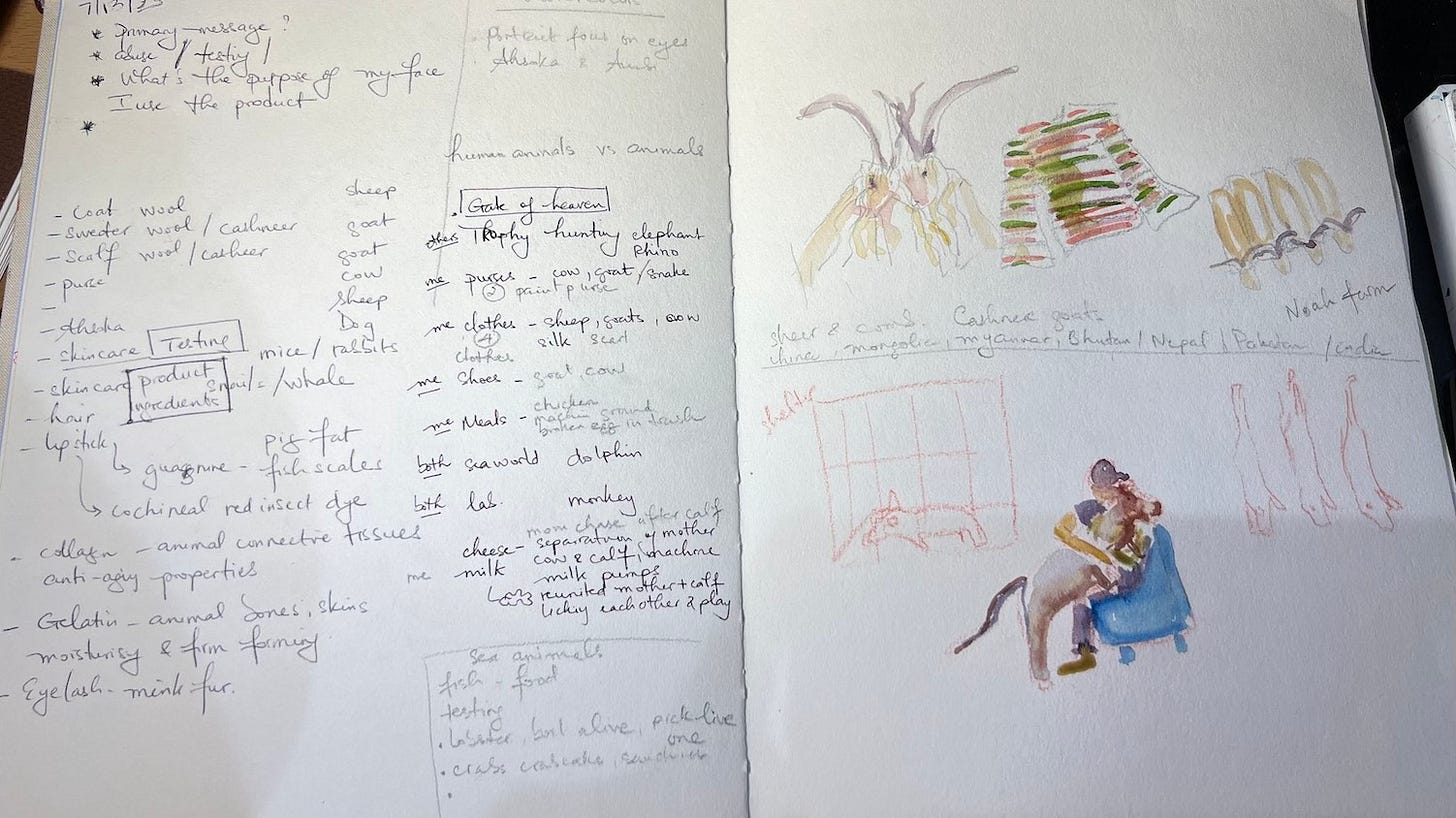 7/12/23
* Primary message ?
* abuse / testing /
* What's the purpose of my face
I use the product
*
- Coat wool sheep
- sweater wool / cashmeer goat
- Scarf wool / casheer goat
- purse cow
- sheep
- Ahska Dog
- skincare Testing mice / rabbits
- skincare product ingredients snails / whale
- hair
- lipstick pig fat
↳ guagnine - fish scales
↳ cochineal red insect dye
- collagn - animal connective tissues
anti-agiy properties
- Gelatin - animal bones, skins
moisturisy & firm forming
- Eyelash - mink fur.
. Portrait focus on eyes
. Ahska &
human animals vs animals
. Gate of heaven
others Trophy hunting elephant
Rhino
me purses - cow, goat / snake
② paint purse
me clothes - sheep, goats, cow
④ silk scarf
clothes
me Shoes - goat, cow
me Meals - chicken
machin ground
broken egg in trash
both seaworld dolphin
both lab. monkey
mom chase after calf
cheese - separation of mother
me milk cow & calf, machine
milk pumps
↳ reunited mother + calf
lickiy each other & play
Sea animals
fish - food
testing
. lobster, boil alive, pick live
one
. crabs crabcake, sandwich
.
Noah farm
sheer & comb. Cashmee goats
china, mongolia, myanmar, Bhutan / Nepal / Pakistan / India
shelter